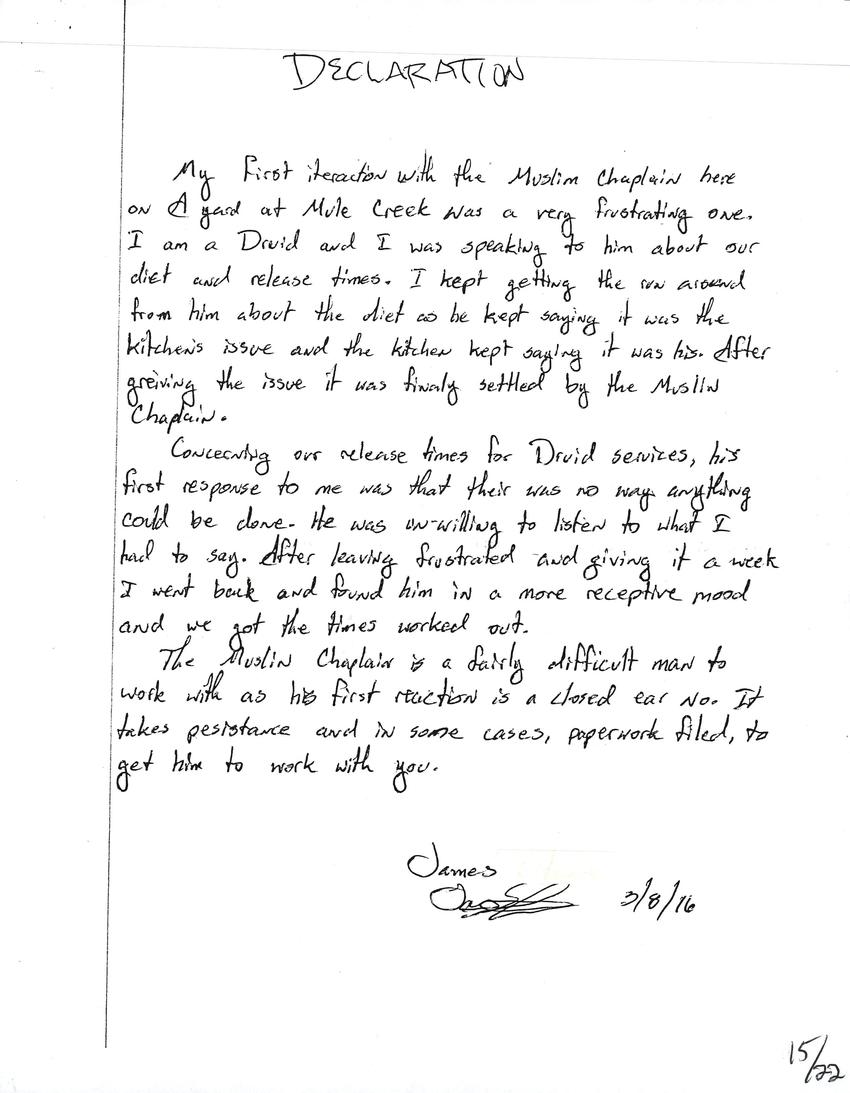 DECLARATION
My first iteraction with the Muslim Chaplain here
on A yard at Mule Creek was a very frustrating one.
I am a Druid and I was speaking to him about our
diet and release times. I kept getting the run around
from him about the diet as he kept saying it was the
kitchen's issue and the kitchen kept saying it was his. After
greiving the issue it was finaly settled by the Muslin
Chaplain.
Concerning our release times for Druid services, his
first response to me was that their was no way anything
could be done. He was un-willing to listen to what I
had to say. After leaving frustrated and giving it a week
I went back and found him in a more receptive mood
and we got the times worked out.
The Muslin Chaplain is a fairly difficult man to
work with as his first reaction is a closed ear no. It
takes pesistance and in some cases, paperwork filed, to
get him to work with you.
James
3/8/16
15/22